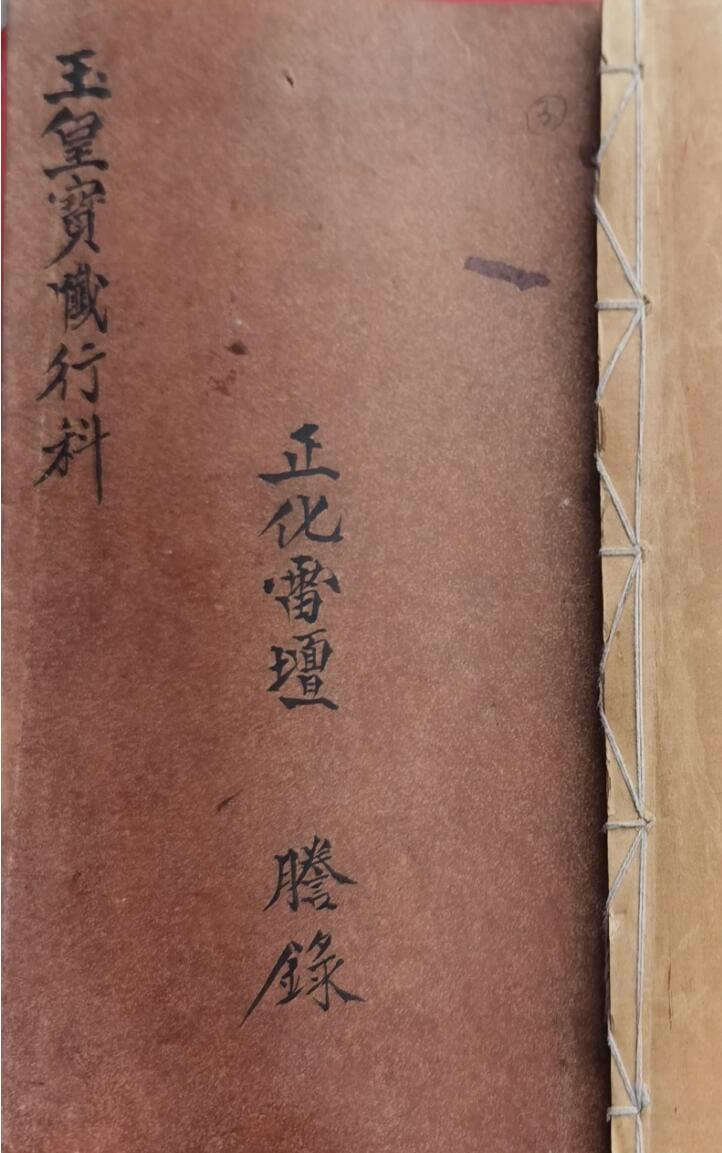 ③
正化雷壇 謄錄
玉皇寶懺行科